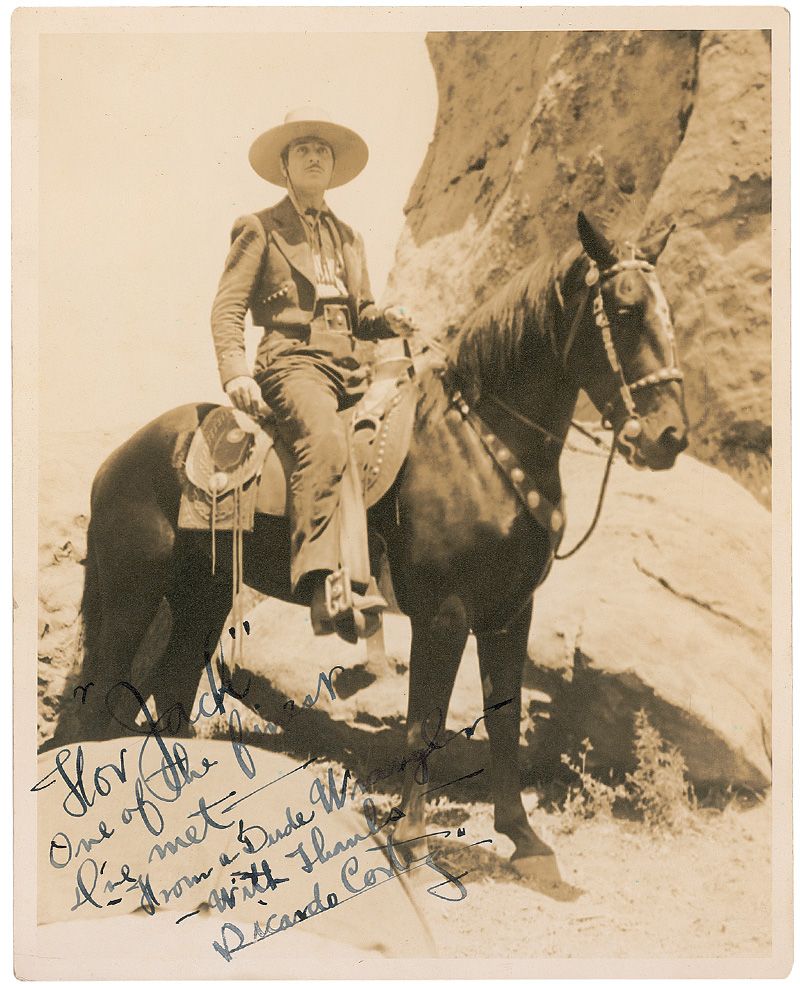 For "Jack"
One of the finest
I've met—
From a "Dude Wrangler"
— With Thanks —
Ricardo Cortez